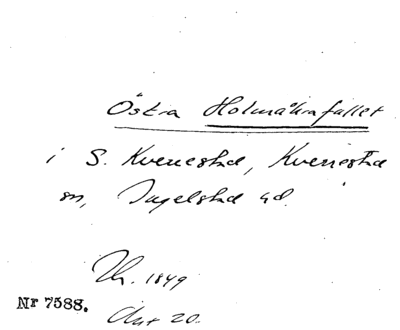 Östra Holmåkrafallet
i S. Kverrestad, Kverrestad
sn, Ingelstad hd.
Th. 1849
Nr 7588.
Akt 20.